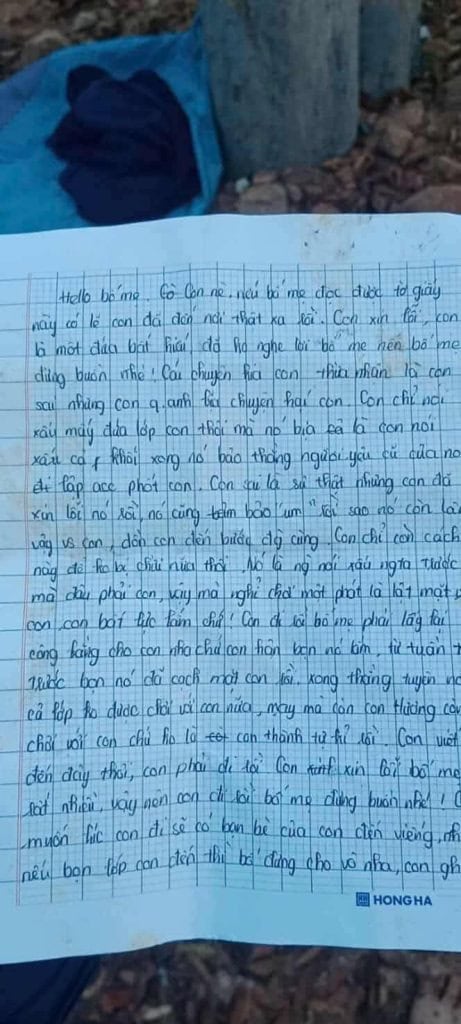 Hello bố mẹ. Cô Con nè. nếu bố mẹ đọc được tờ giấy
này có lẽ con đã đến nơi thật xa rồi. Con xin lỗi, con
là một đứa bất hiếu đã ko nghe lời bố mẹ nên bố mẹ
đừng buồn nhé! Cái chuyện kia con thừa nhận là con
sai nhưng con q.anh bịa chuyện hại con. Con chỉ nói
xấu mấy đứa lớp con thôi mà nó bịa là con nói
xấu cả khối xong nó bảo thằng người yêu cũ của nó
lập acc phốt con. Con sai là sự thật nhưng con đã
xin lỗi nó rồi, nó cũng bảo "um" rồi sao nó còn làm
vậy vs con, dồn con đến bước độ cùng. Con chỉ còn cách
này để ko bị chửi nữa thôi. Nó là ng nói xấu ngta trước
mà đâu phải con, vậy mà nghỉ chơi một phát là lật mặt
con, con bất lực lắm chứ! Con đi rồi bố mẹ phải lấy lại
công bằng cho con nha chứ con hận bọn nó lắm, từ tuần
trước bọn nó đã cạch mặt con rồi, xong thằng tuyên
cả lớp ko được chơi với con nữa, may mà còn con thương
chơi với con chứ ko là con thành tự kỉ rồi. Con viết
đến đây thôi, con phải đi rồi Con xin lỗi bố mẹ
rất nhiều, vậy nên con đi rồi bố mẹ đừng buồn nhé!
muốn lúc con đi sẽ có bạn bè của con đến viếng,
nếu bạn lớp con đến thì bố đừng cho vô nha, con
HONG HA